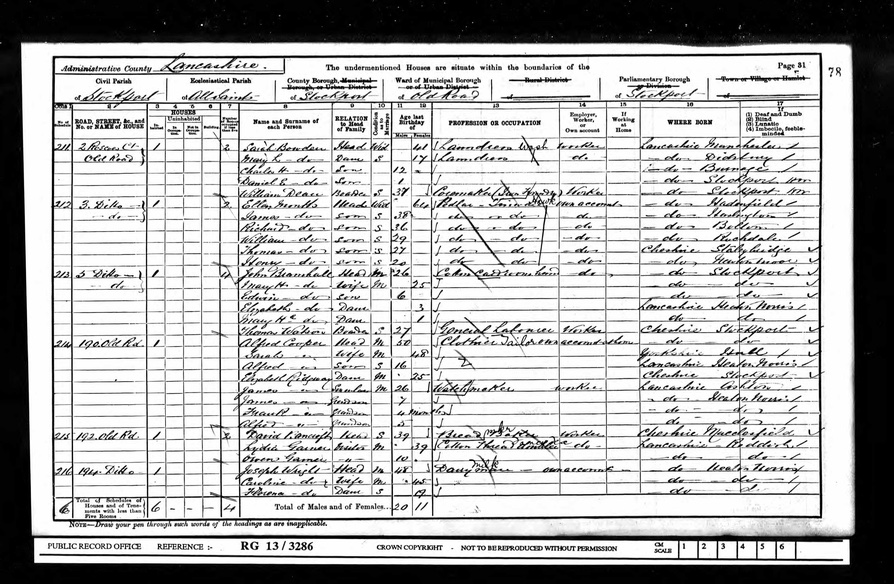 Administrative County Lancashire. The undermentioned Houses are situate within the boundaries of the Page 31
78
Civil Parish Ecclesiastical Parish County Borough, Municipal Borough, or Urban District Ward of Municipal Borough or of Urban District Rural District Parliamentary Borough or Division Town or Village or Hamlet
of Stockport of All Saints of Stockport of Old Road of of Stockport of
ROAD, STREET, &c., and No. or NAME of HOUSE HOUSES Name and Surname of each Person RELATION to Head of Family Age last Birthday of PROFESSION OR OCCUPATION Employer, Worker, or Own account If Working at Home WHERE BORN (1) Deaf and Dumb (2) Blind (3) Lunatic (4) Imbecile, feeble-minded
211 1 2 Sarah Bowden Head Wid 41 Laundress Wash Worker Lancashire Manchester
Old Road Mary L do Daur S 17 Laundress do do Didsbury
Charles H do Son 12 do Burnage
Daniel E do Son 1 do Stockport
William Dean S 37 Worker do Stockport
212 3 Ditto 1 2 Ellen Head Wid 64 own account do Hadenfield
do James do Son S 38 do do do do
Richard do Son S 36 do do do do Bolton
William do Son S 29 do do do do Rochdale
Thomas do Son S 27 do do do do Cheshire Stalybridge
Henry do Son S 20 do do do do
213 5 Ditto 1 4 John Bramhall Head M 26 Cotton Card room hand do do Stockport
do Mary H do Wife M 25 do do
Edwin do Son 6 do do
Elizabeth do Daur 3 Lancashire Heaton Norris
Mary H do Daur 1 do do
Thomas Watson Boarder S 27 General Labourer Worker Cheshire Stockport
214 190 Old Rd 1 Alfred Cooper Head M 50 Clothier Tailor own account at home do do
Sarah Wife M 48 Yorkshire Hull
Alfred Son S 16 Lancashire Heaton Norris
Elizabeth Ridgway Daur M 25 Cheshire Stockport
James M 26 Watchmaker worker Lancashire
James Grandson 7 do Heaton Norris
Frank Grandson 4 months do do
Alfred Grandson 5 do do
215 192 Old Rd 1 2 David Bancroft Head S 39 Bread Baker Worker Cheshire Macclesfield
Lydia Garner Visitor M 39 Cotton Thread do Lancashire Reddish
Owen Garner 10 do do
216 194 Ditto 1 Joseph Wright Head M 48 Dairyman milk own account do Heaton Norris
Caroline do Wife M 45 do do
Florence do Daur S 19 do do
6 Total of Schedules of Houses and of Tenements with less than Five Rooms 6 4 Total of Males and Females... 20 11
NOTE—Draw your pen through such words of the headings as are inapplicable.
PUBLIC RECORD OFFICE REFERENCE :- RG 13/3286 CROWN COPYRIGHT - NOT TO BE REPRODUCED WITHOUT PERMISSION CM SCALE 1 2 3 4 5 6